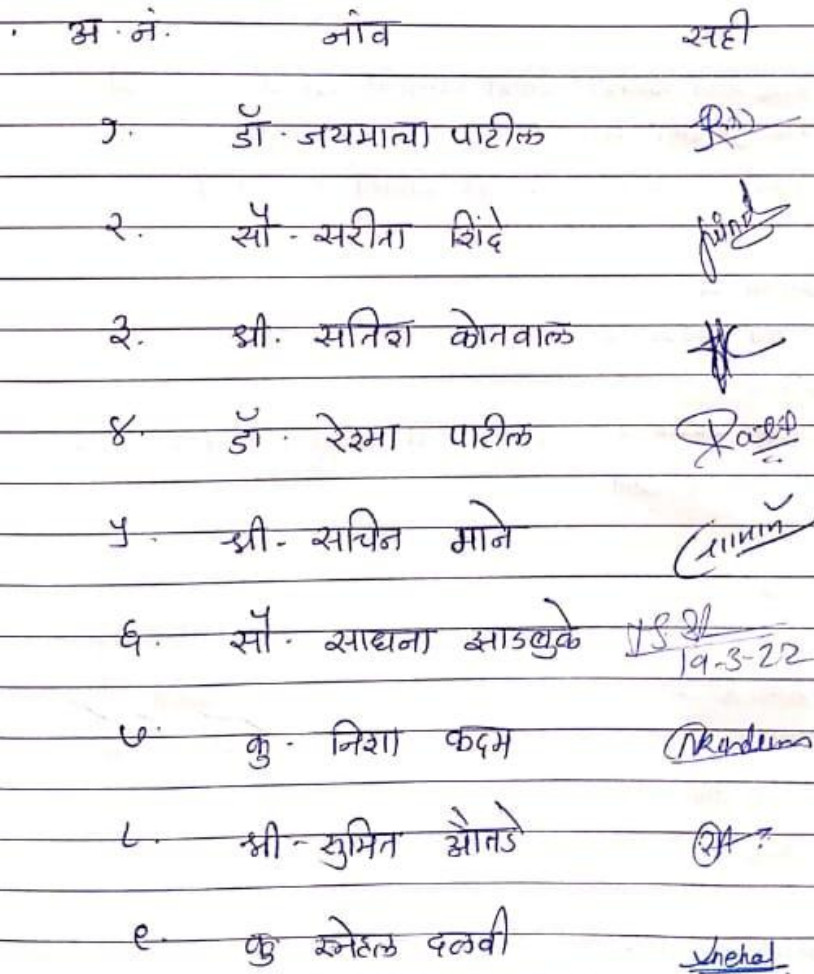 अ. नं. नांव सही
१. डॉ. जयमाला पाटील
२. सौ. सरीता शिंदे
३. श्री. सतिश कोतवाल
४. डॉ. रेश्मा पाटील
५. श्री. सचिन माने
६. सौ. साधना झाडबुके
19-3-22
७. कु. निशा कदम
८. श्री. सुमित औताडे
९. कु स्नेहल दळवी Snehal